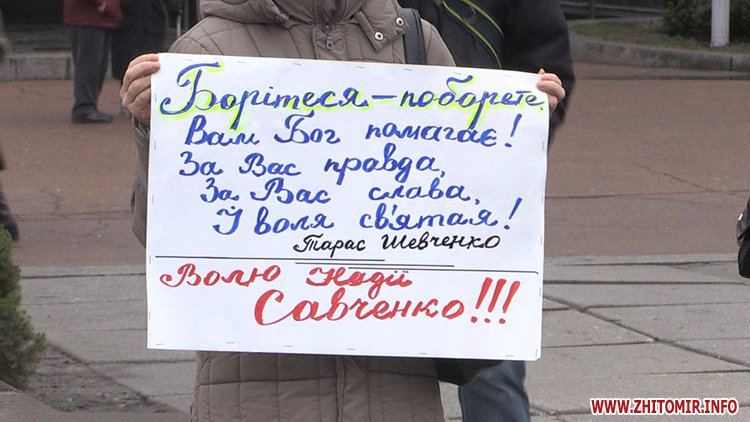 Борітеся – поборете,
Вам Бог помагає!
За Вас правда,
За Вас слава,
І воля св'ятая!
Тарас Шевченко
Волю Надії
Савченко!!!
WWW.ZHITOMIR.INFO